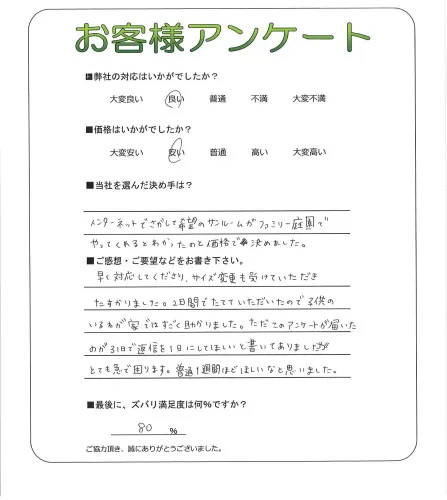 お客様アンケート
■弊社の対応はいかがでしたか？
大変良い 良い 普通 不満 大変不満
■価格はいかがでしたか？
大変安い 安い 普通 高い 大変高い
■当社を選んだ決め手は？
インターネットでさがして希望のサンルームがファミリー庭園で
やってくれるとわかったのと価格で決めました。
■ご感想・ご要望などをお書き下さい。
早く対応してくださり、サイズ変更も受けていただき
たすかりました。2日間でたてていただいたので子供の
いるわが家ではすごく助かりました。ただこのアンケートが届いた
のが31日で返信を1日にしてほしいと書いてありましたが
とても急で困ります。普通1週間ほどほしいなと思いました。
■最後に、ズバリ満足度は何%ですか？
80 %
ご協力頂き、誠にありがとうございました。